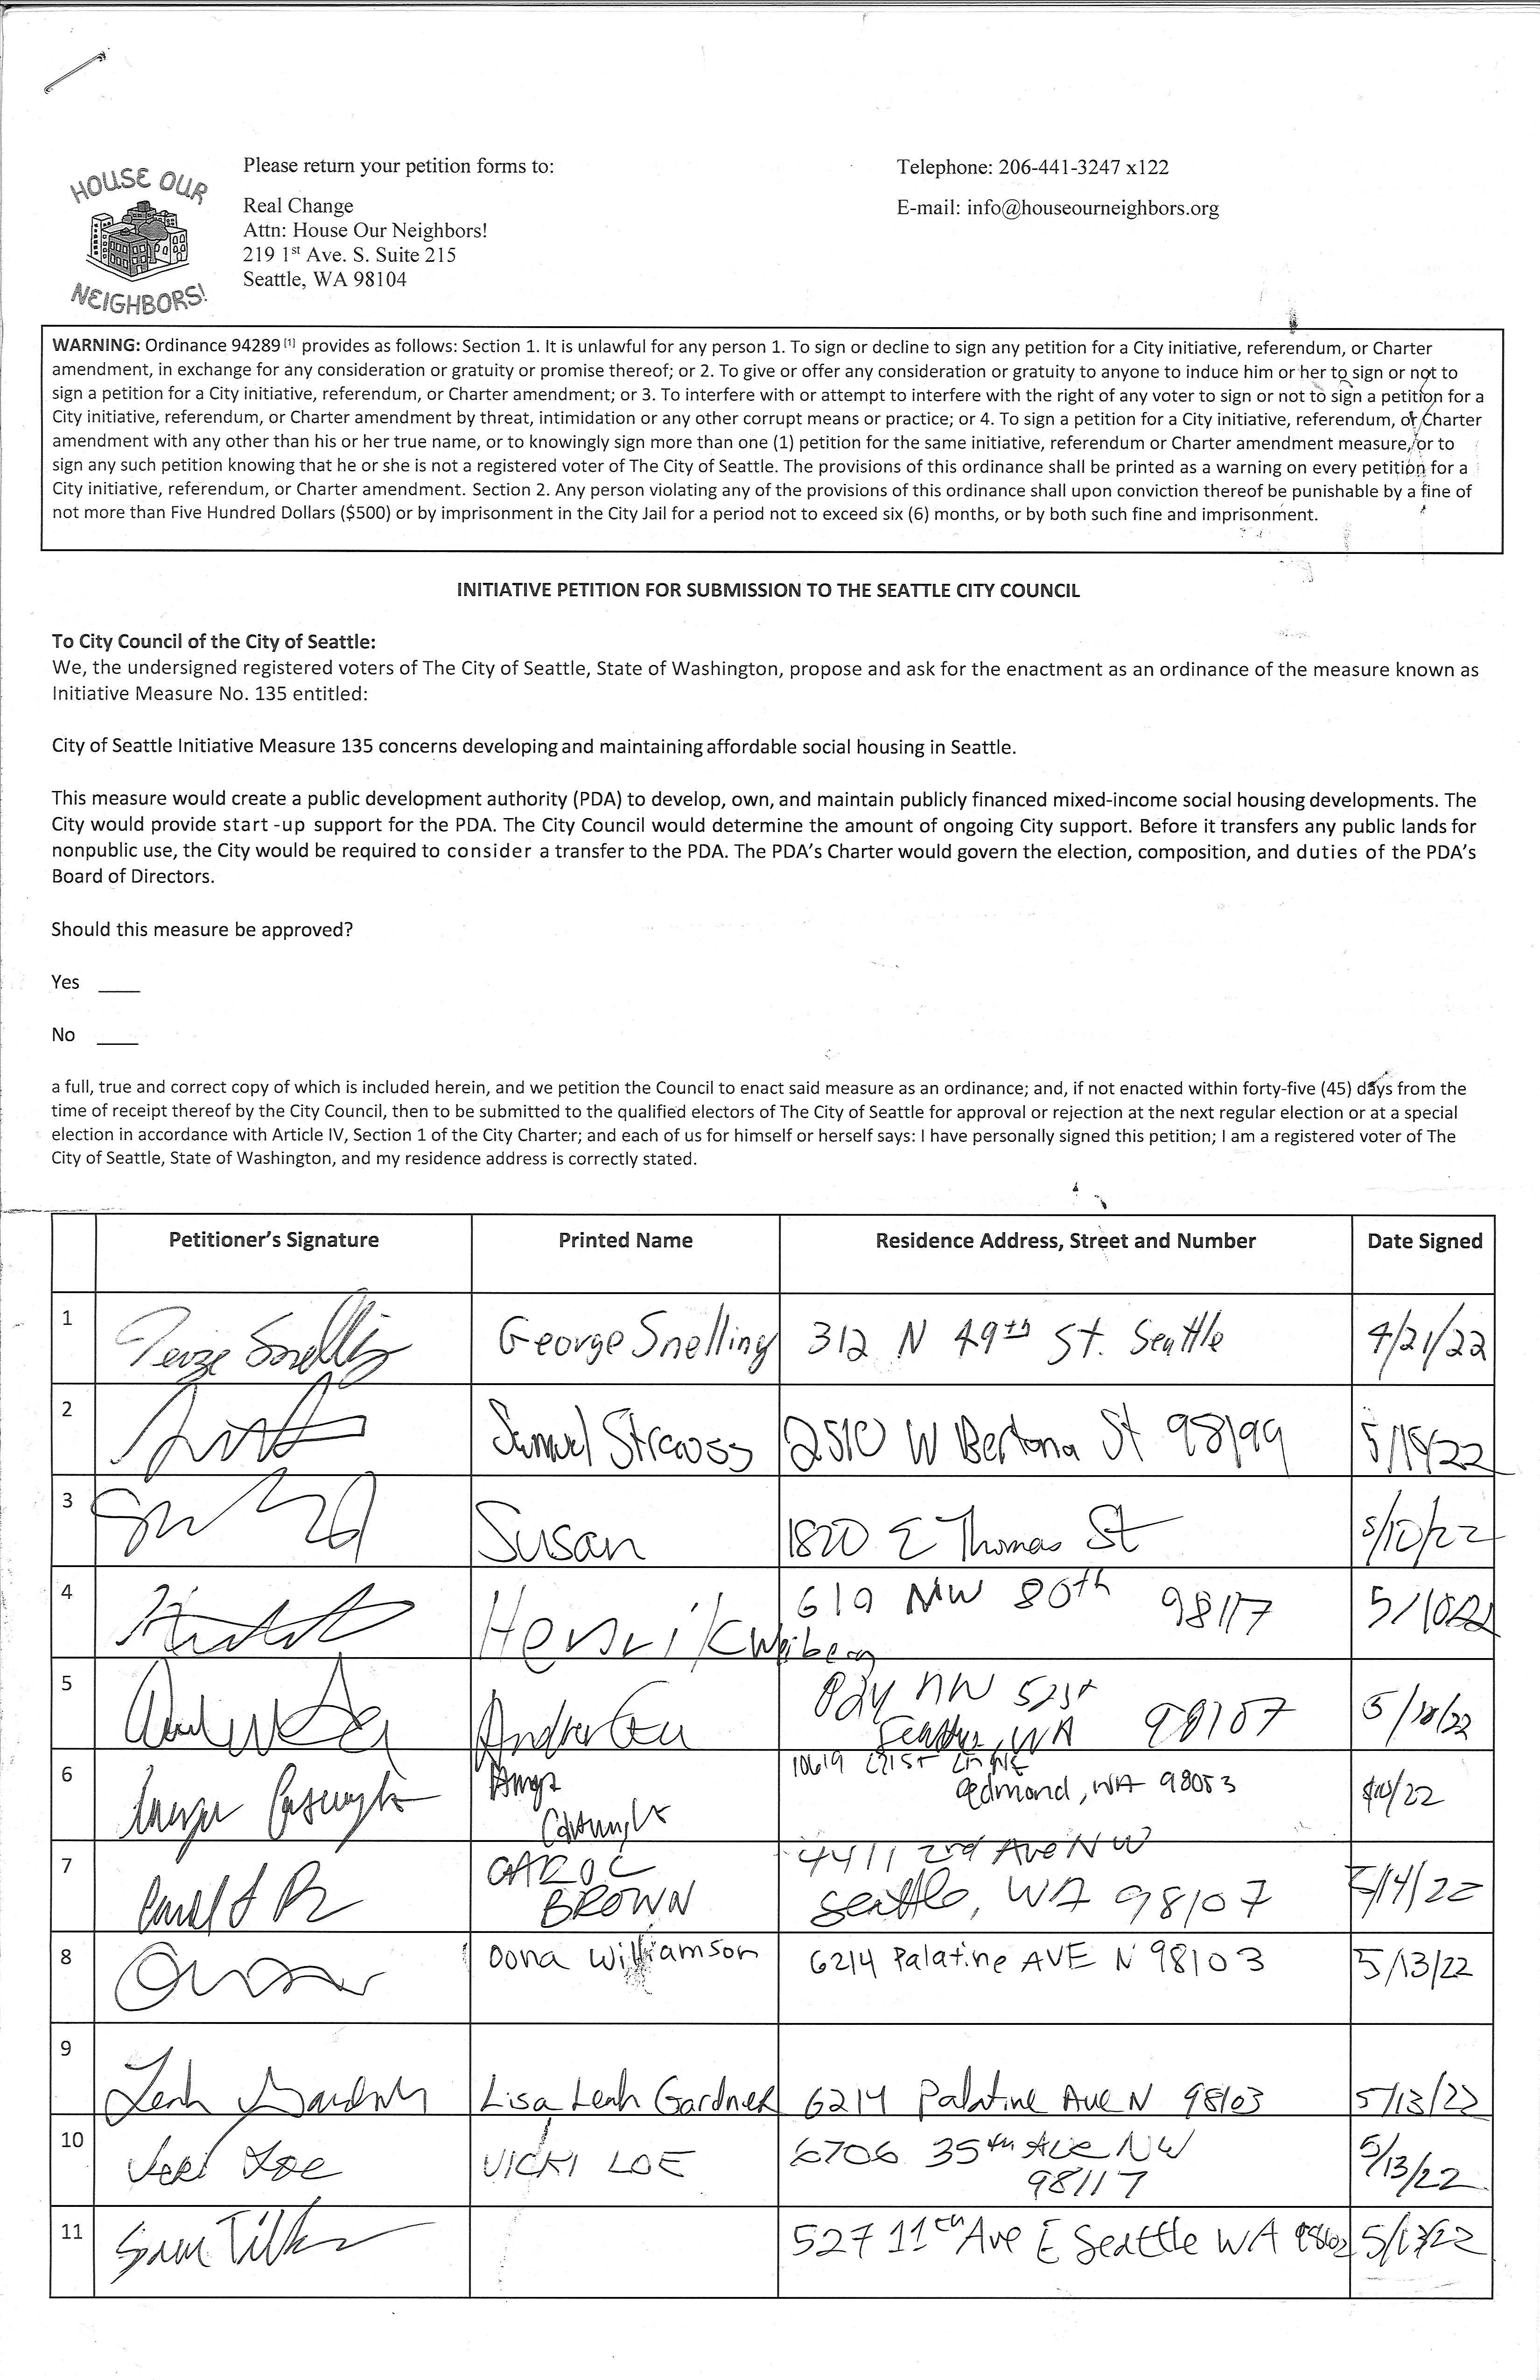 HOUSE OUR
NEIGHBORS!
Please return your petition forms to:
Real Change
Attn: House Our Neighbors!
219 1st Ave. S. Suite 215
Seattle, WA 98104
Telephone: 206-441-3247 x122
E-mail: info@houseourneighbors.org
WARNING: Ordinance 94289 [1] provides as follows: Section 1. It is unlawful for any person 1. To sign or decline to sign any petition for a City initiative, referendum, or Charter
amendment, in exchange for any consideration or gratuity or promise thereof; or 2. To give or offer any consideration or gratuity to anyone to induce him or her to sign or not to
sign a petition for a City initiative, referendum, or Charter amendment; or 3. To interfere with or attempt to interfere with the right of any voter to sign or not to sign a petition for a
City initiative, referendum, or Charter amendment by threat, intimidation or any other corrupt means or practice; or 4. To sign a petition for a City initiative, referendum, or Charter
amendment with any other than his or her true name, or to knowingly sign more than one (1) petition for the same initiative, referendum or Charter amendment measure, or to
sign any such petition knowing that he or she is not a registered voter of The City of Seattle. The provisions of this ordinance shall be printed as a warning on every petition for a
City initiative, referendum, or Charter amendment. Section 2. Any person violating any of the provisions of this ordinance shall upon conviction thereof be punishable by a fine of
not more than Five Hundred Dollars ($500) or by imprisonment in the City Jail for a period not to exceed six (6) months, or by both such fine and imprisonment.
INITIATIVE PETITION FOR SUBMISSION TO THE SEATTLE CITY COUNCIL
To City Council of the City of Seattle:
We, the undersigned registered voters of The City of Seattle, State of Washington, propose and ask for the enactment as an ordinance of the measure known as
Initiative Measure No. 135 entitled:
City of Seattle Initiative Measure 135 concerns developing and maintaining affordable social housing in Seattle.
This measure would create a public development authority (PDA) to develop, own, and maintain publicly financed mixed-income social housing developments. The
City would provide start -up support for the PDA. The City Council would determine the amount of ongoing City support. Before it transfers any public lands for
nonpublic use, the City would be required to consider a transfer to the PDA. The PDA's Charter would govern the election, composition, and duties of the PDA's
Board of Directors.
Should this measure be approved?
Yes ___
No ___
a full, true and correct copy of which is included herein, and we petition the Council to enact said measure as an ordinance; and, if not enacted within forty-five (45) days from the
time of receipt thereof by the City Council, then to be submitted to the qualified electors of The City of Seattle for approval or rejection at the next regular election or at a special
election in accordance with Article IV, Section 1 of the City Charter; and each of us for himself or herself says: I have personally signed this petition; I am a registered voter of The
City of Seattle, State of Washington, and my residence address is correctly stated.
Petitioner's Signature Printed Name Residence Address, Street and Number Date Signed
1 George Snelling 312 N 49th St. Seattle 4/21/22
2 Samuel Strauss 2510 W Bertona St 98199 5/15/22
3 Susan 1820 E Thomas St 5/10/22
4 Henrik Weiberg 619 NW 80th 98117 5/10/22
5 NW
Seattle, WA 98107 5/10/22
6 10619
Redmond, WA 98053 /22
7 CAROL 4411 2nd Ave NW
BROWN Seattle, WA 98107 5/14/22
8 Oona Williamson 6214 Palatine AVE N 98103 5/13/22
9 Leah Gardner Lisa Leah Gardner 6214 Palatine Ave N 98103 5/13/22
10 VICKI LOE 6706 35th Ave NW
98117 5/13/22
11 Sam 527 11th Ave E Seattle WA 98102 5/13/22